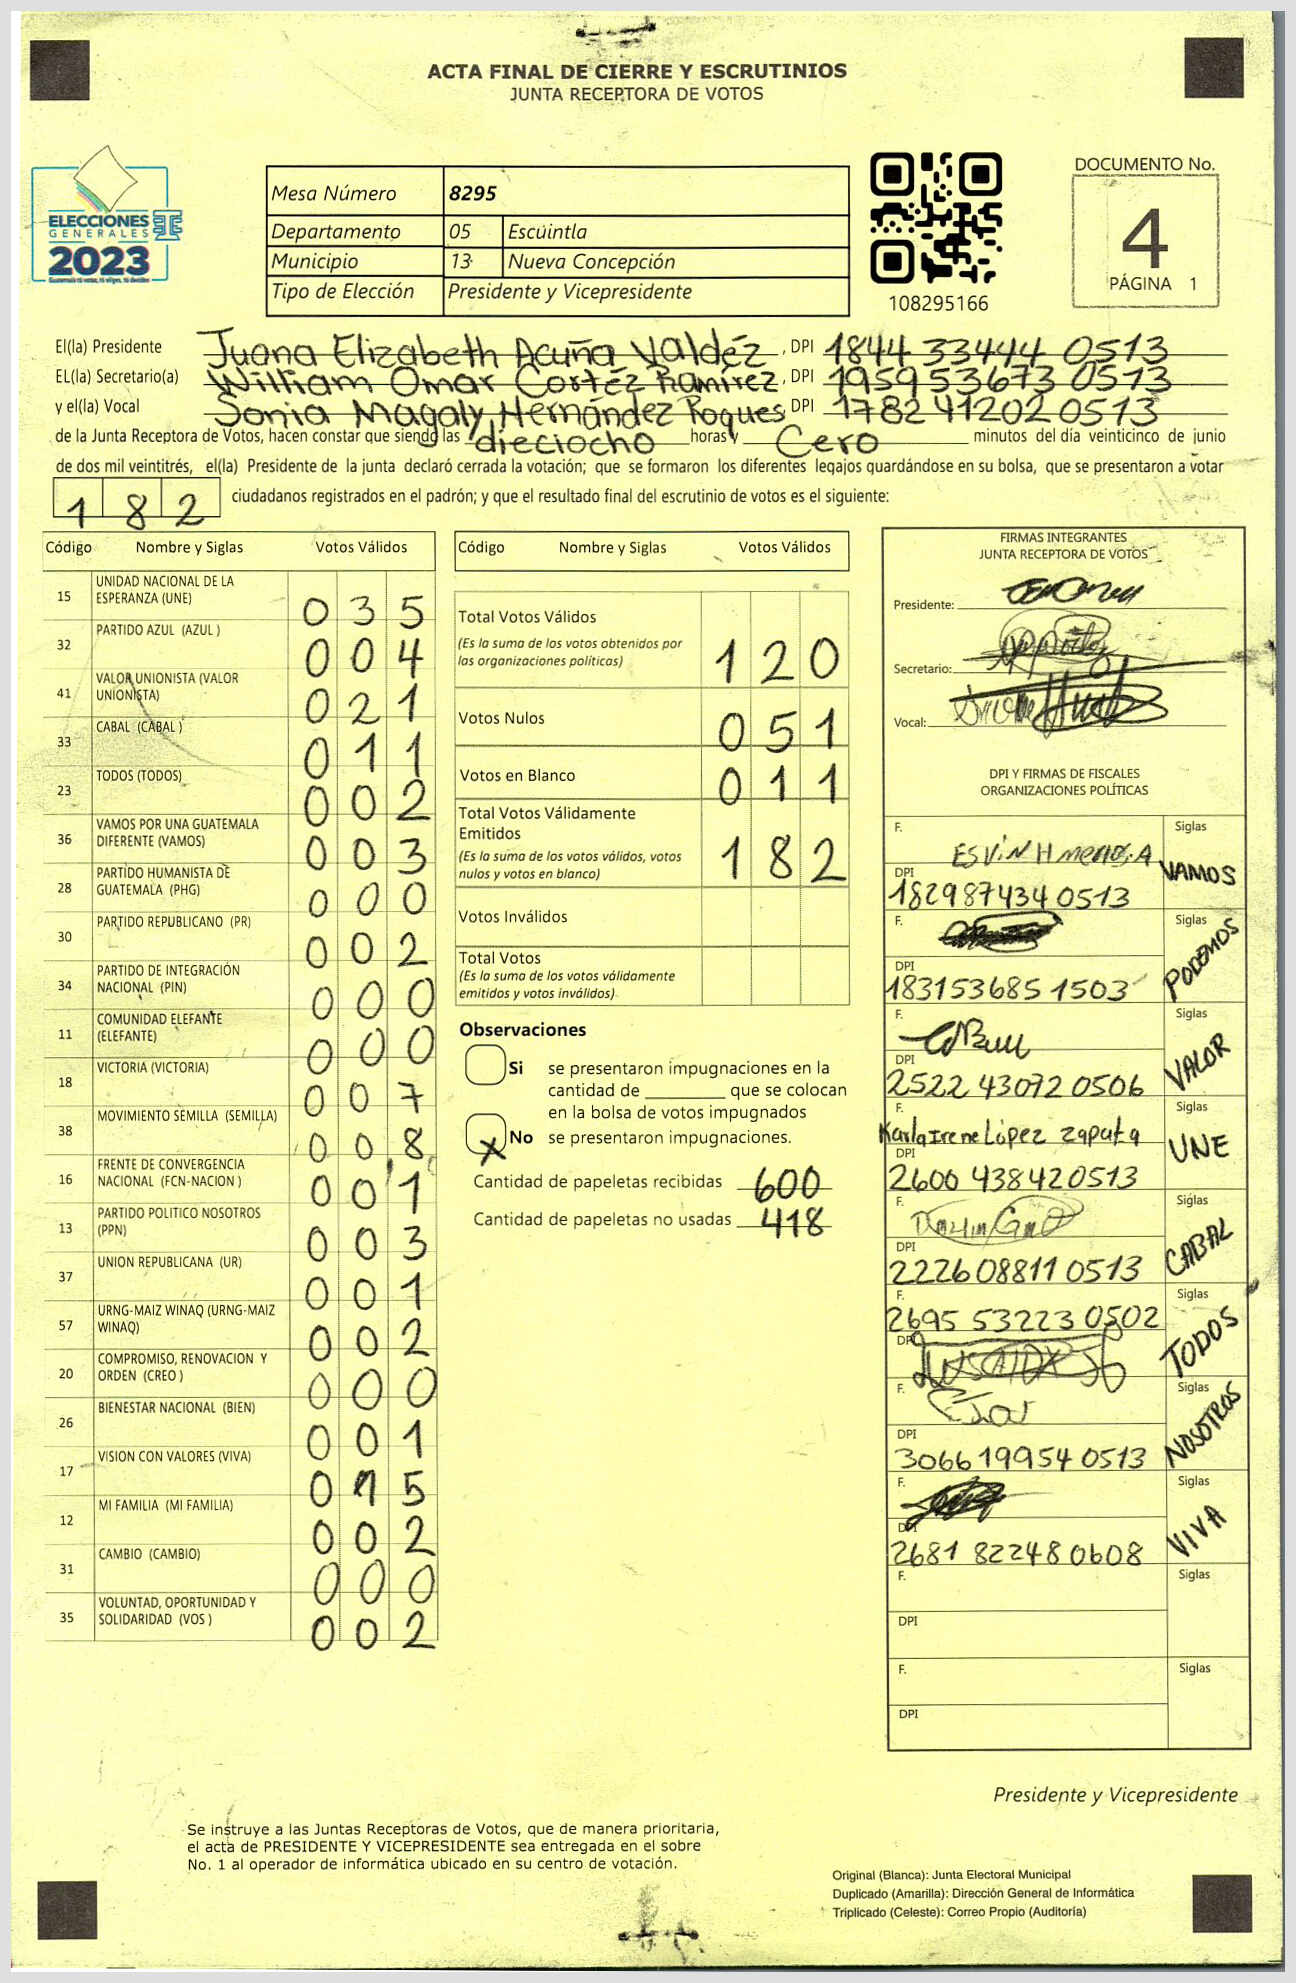 ACTA FINAL DE CIERRE Y ESCRUTINIOS
JUNTA RECEPTORA DE VOTOS
ELECCIONES
GENERALES
2023
Mesa Número 8295
Departamento 05 Escuintla
Municipio 13 Nueva Concepción
Tipo de Elección Presidente y Vicepresidente
108295166
DOCUMENTO No.
4
PÁGINA 1
El(la) Presidente Juana Elizabeth Acuña Valdéz, DPI 1844 33444 0513
EL(la) Secretario(a) William Omar Cortéz Ramírez, DPI 1959 53673 0513
y el(la) Vocal Sonia Magaly Hernández Roques DPI 1782 41202 0513
de la Junta Receptora de Votos, hacen constar que siendo las dieciocho horas y Cero minutos del día veinticinco de junio
de dos mil veintitrés, el(la) Presidente de la junta declaró cerrada la votación; que se formaron los diferentes legajos guardándose en su bolsa, que se presentaron a votar
182 ciudadanos registrados en el padrón; y que el resultado final del escrutinio de votos es el siguiente:
Código Nombre y Siglas Votos Válidos
15 UNIDAD NACIONAL DE LA ESPERANZA (UNE) 035
32 PARTIDO AZUL (AZUL ) 004
41 VALOR UNIONISTA (VALOR UNIONISTA) 021
33 CABAL (CABAL ) 011
23 TODOS (TODOS) 002
36 VAMOS POR UNA GUATEMALA DIFERENTE (VAMOS) 003
28 PARTIDO HUMANISTA DE GUATEMALA (PHG) 000
30 PARTIDO REPUBLICANO (PR) 002
34 PARTIDO DE INTEGRACIÓN NACIONAL (PIN) 000
11 COMUNIDAD ELEFANTE (ELEFANTE) 000
18 VICTORIA (VICTORIA) 007
38 MOVIMIENTO SEMILLA (SEMILLA) 008
16 FRENTE DE CONVERGENCIA NACIONAL (FCN-NACION ) 001
13 PARTIDO POLITICO NOSOTROS (PPN) 003
37 UNION REPUBLICANA (UR) 001
57 URNG-MAIZ WINAQ (URNG-MAIZ WINAQ) 002
20 COMPROMISO, RENOVACION Y ORDEN (CREO ) 000
26 BIENESTAR NACIONAL (BIEN) 001
17 VISION CON VALORES (VIVA) 015
12 MI FAMILIA (MI FAMILIA) 002
31 CAMBIO (CAMBIO) 000
35 VOLUNTAD, OPORTUNIDAD Y SOLIDARIDAD (VOS ) 002
Código Nombre y Siglas Votos Válidos
Total Votos Válidos 120
(Es la suma de los votos obtenidos por
las organizaciones políticas)
Votos Nulos 051
Votos en Blanco 011
Total Votos Válidamente
Emitidos 182
(Es la suma de los votos válidos, votos
nulos y votos en blanco)
Votos Inválidos
Total Votos
(Es la suma de los votos válidamente
emitidos y votos inválidos)
Observaciones
Si se presentaron impugnaciones en la
cantidad de ________ que se colocan
en la bolsa de votos impugnados
X No se presentaron impugnaciones.
Cantidad de papeletas recibidas 600
Cantidad de papeletas no usadas 418
FIRMAS INTEGRANTES
JUNTA RECEPTORA DE VOTOS
Presidente:
Secretario:
Vocal:
DPI Y FIRMAS DE FISCALES
ORGANIZACIONES POLÍTICAS
F. Siglas
DPI VAMOS
182987434 0513
F. Siglas
DPI PODEMOS
183153685 1503
F. Siglas
DPI VALOR
2522 43072 0506
F. Karla Irene López Zapata Siglas
DPI UNE
2600 43842 0513
F. Siglas
DPI CABAL
2226 08811 0513
F. Siglas
2695 53223 0502
DPI TODOS
F. Siglas
DPI NOSOTROS
3066 19954 0513
F. Siglas
DPI VIVA
2681 82248 0608
F. Siglas
DPI
F. Siglas
DPI
Presidente y Vicepresidente
Se instruye a las Juntas Receptoras de Votos, que de manera prioritaria,
el acta de PRESIDENTE Y VICEPRESIDENTE sea entregada en el sobre
No. 1 al operador de informática ubicado en su centro de votación.
Original (Blanca): Junta Electoral Municipal
Duplicado (Amarilla): Dirección General de Informática
Triplicado (Celeste): Correo Propio (Auditoría)